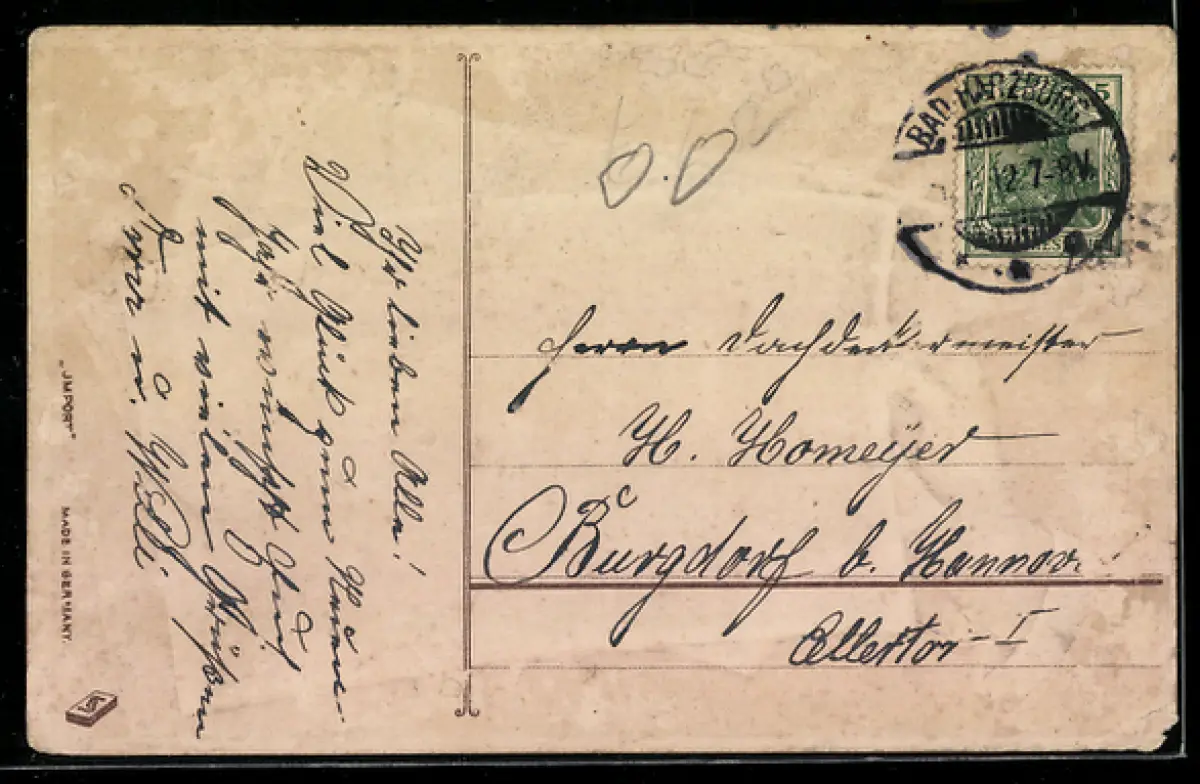 Ihr lieben Alle!
Viel Glück zum neuen
Jahr wünscht Euch
mit vielen Grüßen
u. Willi
"IMPORT"
MADE IN GERMANY.
BAD HARZBURG
12.7-8V.
5
Herrn Dachdeckermeister
H. Homeyer
Burgdorf b. Hannov.
Allertor-I